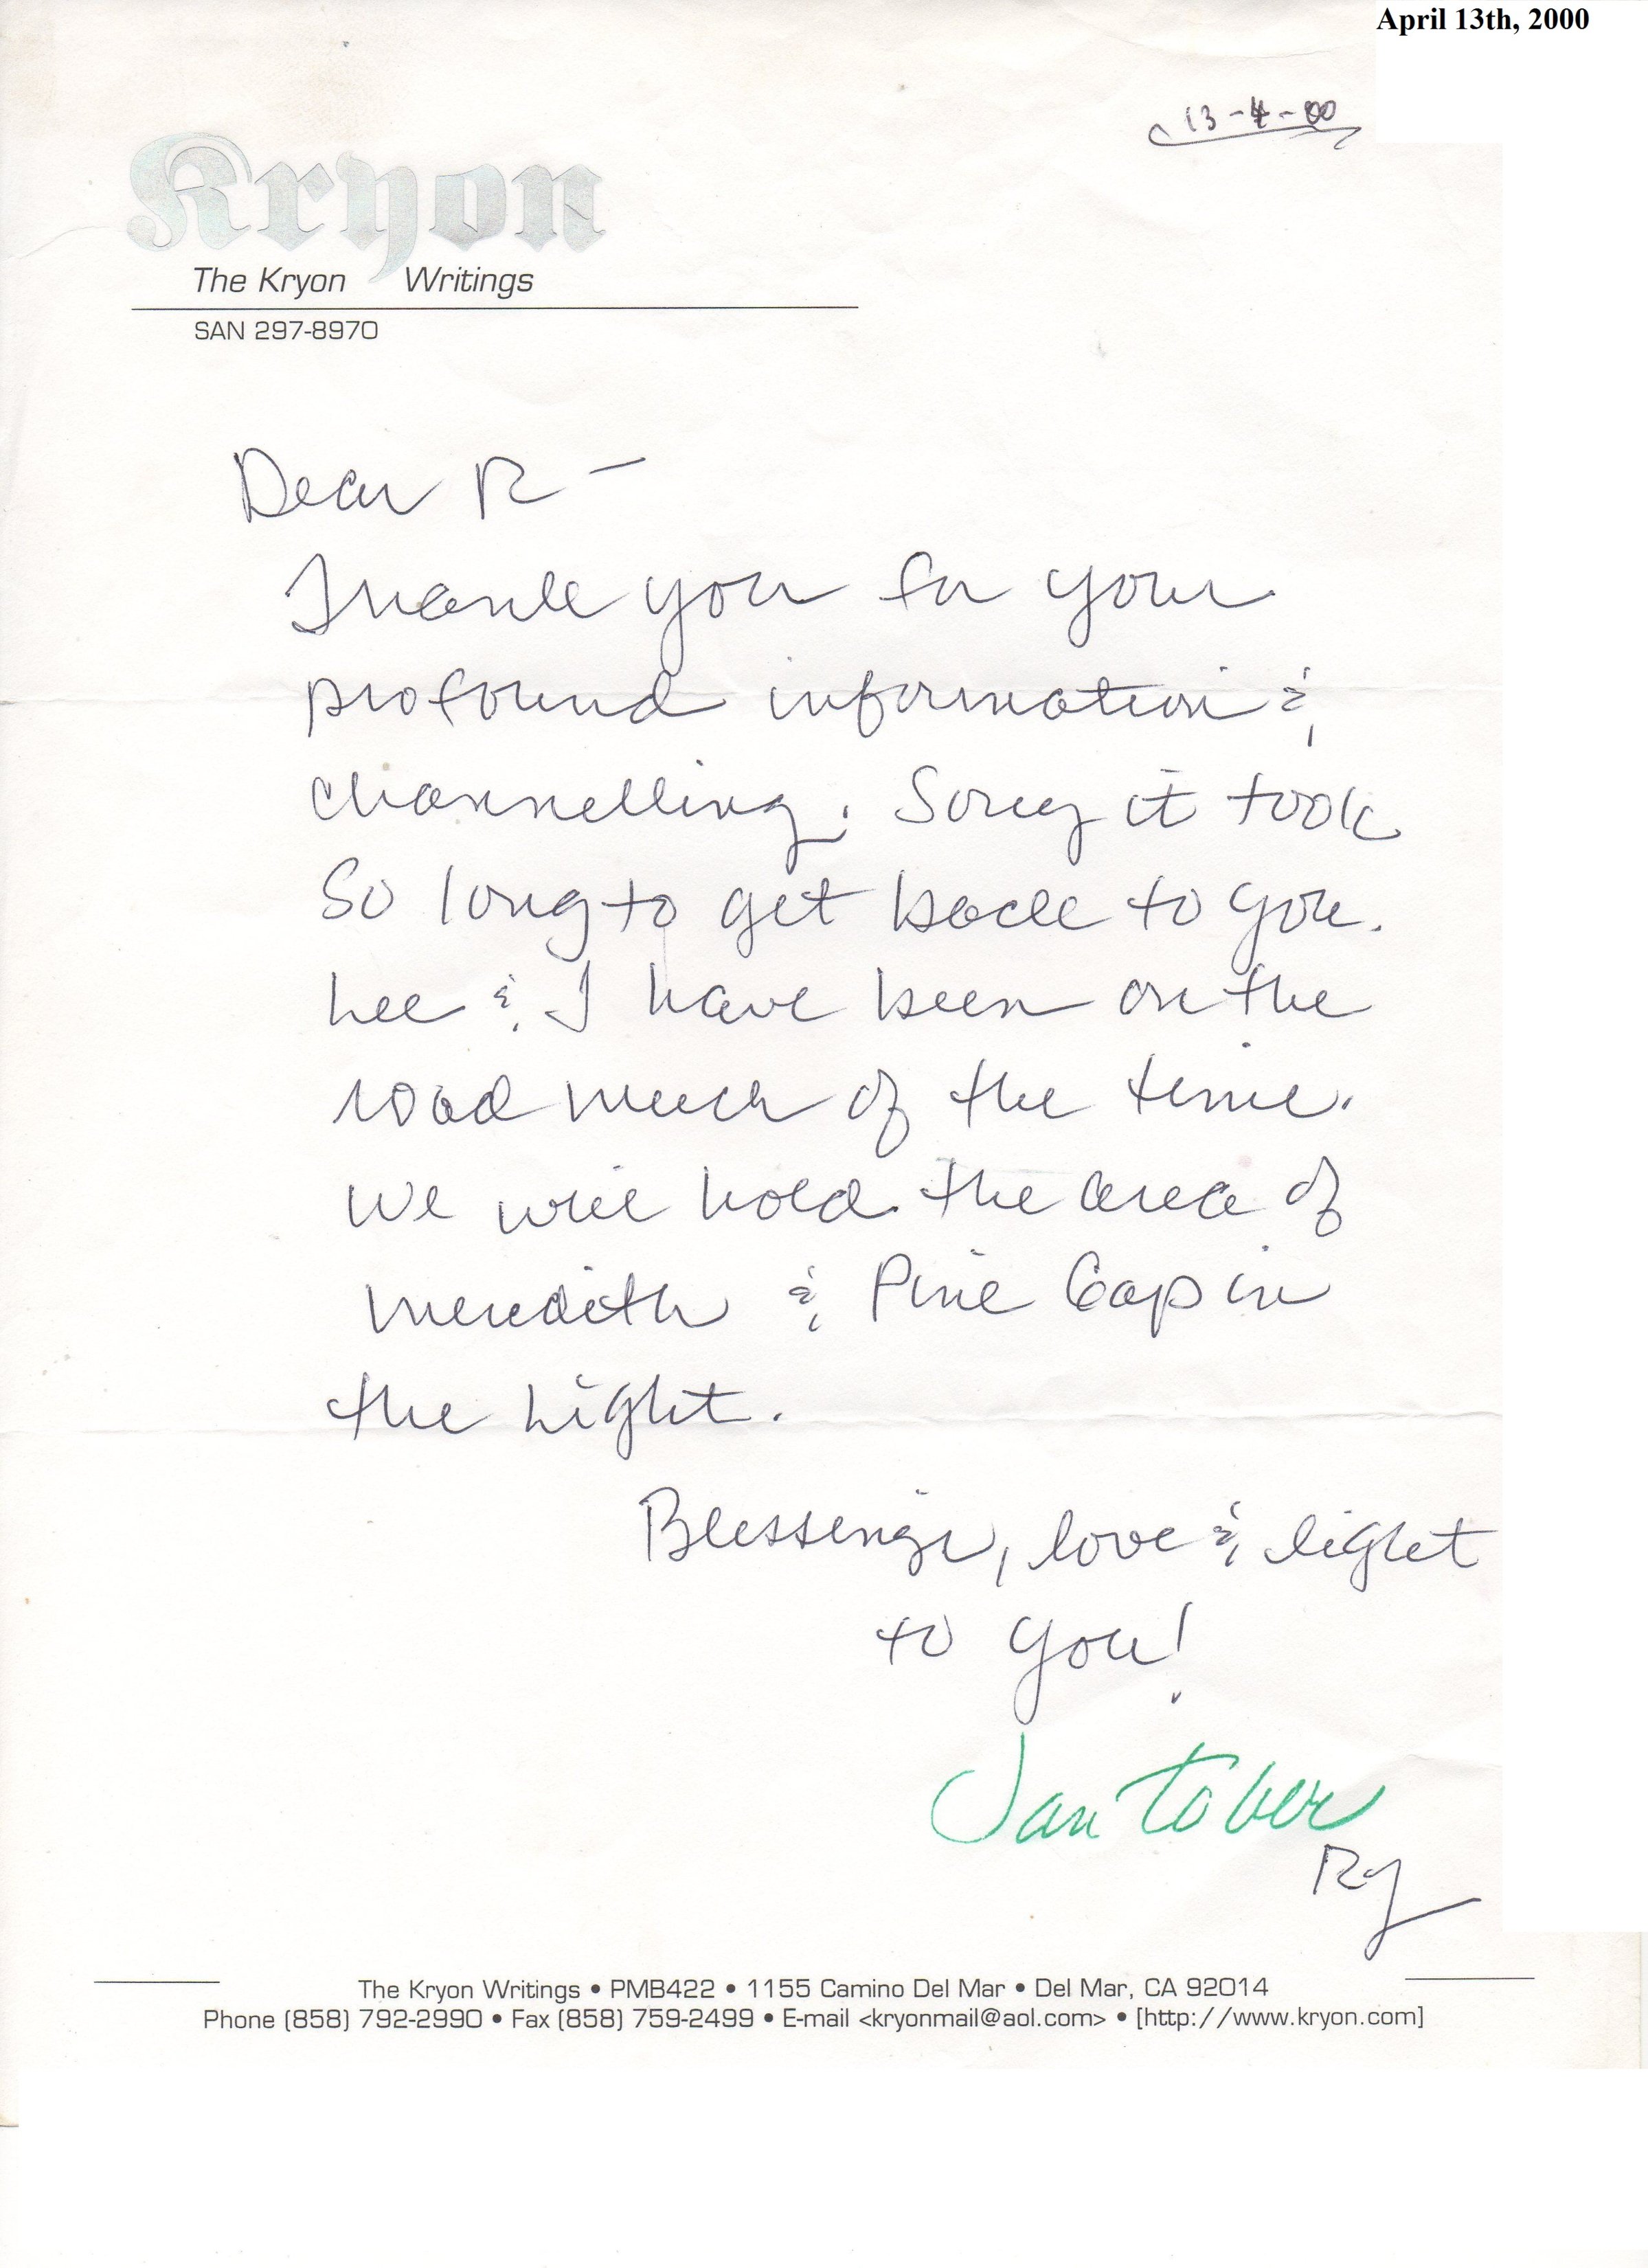 April 13th, 2000
13-4-00
Kryon
The Kryon Writings
SAN 297-8970
Dear R —
Thank you for your
profound information &
channelling. Sorry it took
so long to get back to you.
Lee & I have been on the
road much of the time.
We will hold the area of
Meredith & Pine Gap in
the Light.
Blessings, love & light
to you!
Jan Tober
The Kryon Writings • PMB422 • 1155 Camino Del Mar • Del Mar, CA 92014
Phone (858) 792-2990 • Fax (858) 759-2499 • E-mail <kryonmail@aol.com> • [http://www.kryon.com]